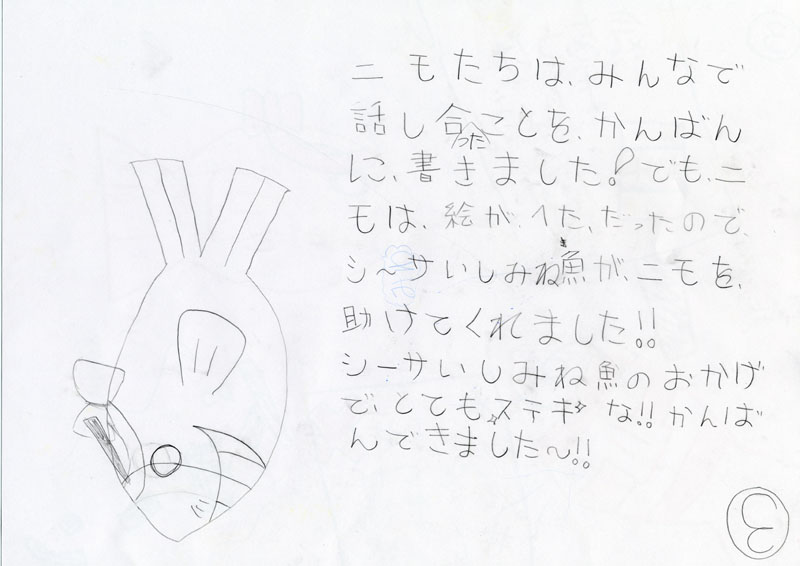 ニモたちは、みんなで
話し合ったことを、かんばん
に、書きました！でも、ニ
モは、絵が、へた、だったので、
シ〜サいしみね魚が、ニモを、
助けてくれました!!
シーサいしみね魚のおかげ
で、とてもステキな!!かんば
んできました〜!!
3